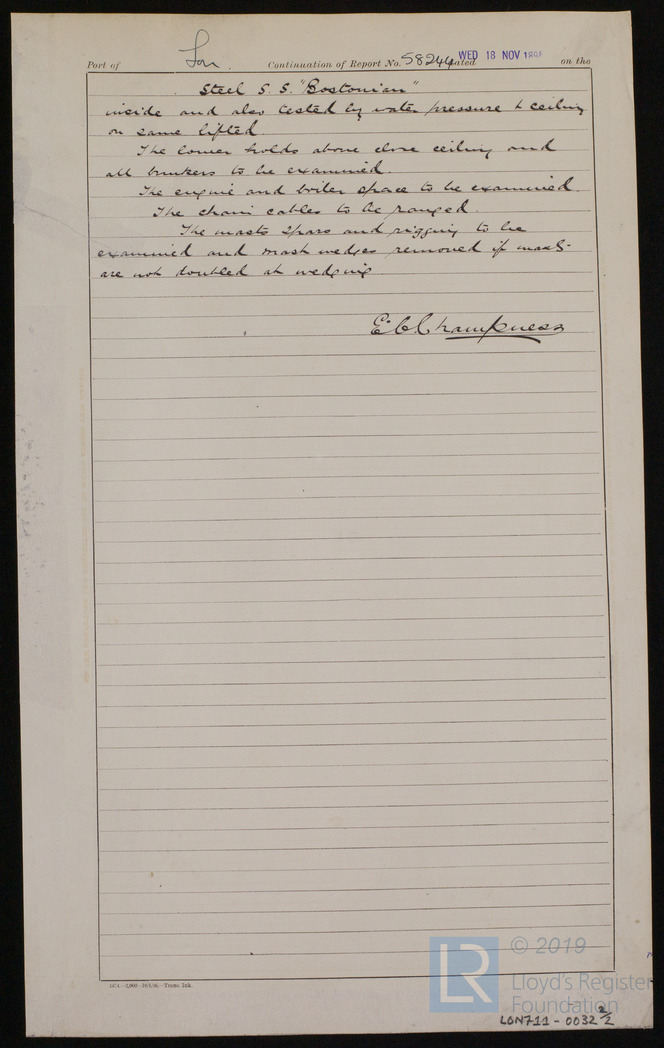 Port of Lon. Continuation of Report No. 58244 dated WED 18 NOV 1896 on the
Steel S. S. "Bostonian"
inside and also tested by water pressure & ceiling
on same lifted
The lower holds above close ceiling and
all bunkers to be examined.
The engine and boiler space to be examined.
The chain cables to be ranged
The masts spars and rigging to be
examined and mast wedges removed if masts
are not doubled at wedging
E. C. Champness
© 2019
LR
Lloyd's Register
Foundation
LON711 - 0032 2/2